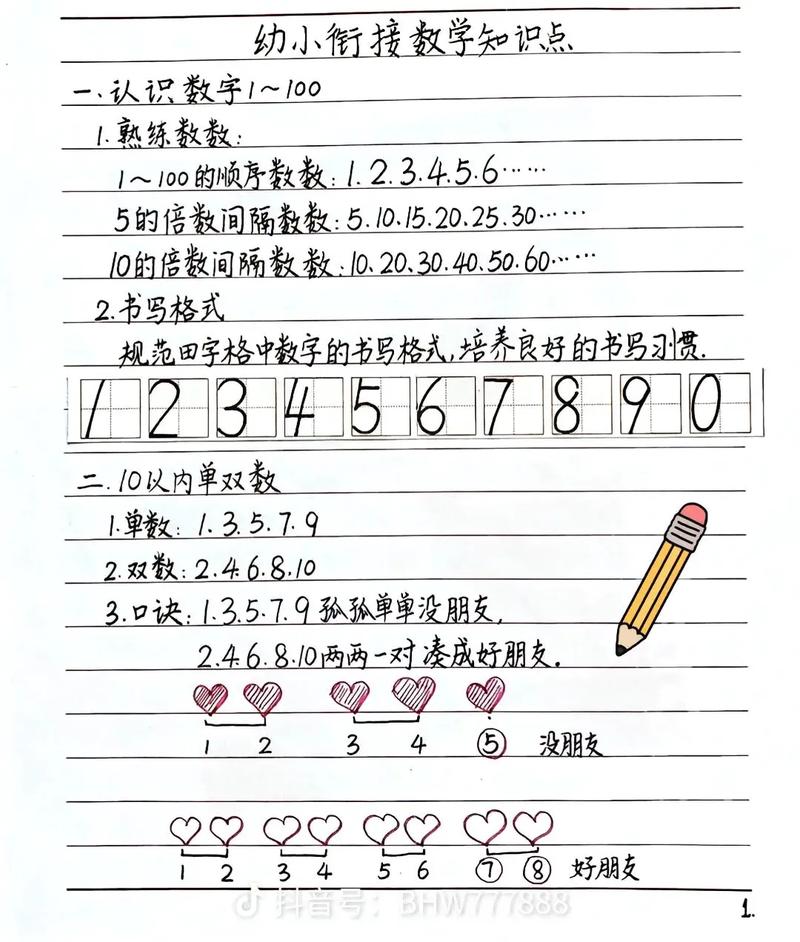 幼小衔接数学知识点
一、认识数字1~100
1.熟练数数:
1~100的顺序数数:1.2.3.4.5.6……
5的倍数间隔数数:5.10.15.20.25.30……
10的倍数间隔数数:10.20.30.40.50.60……
2.书写格式
规范田字格中数字的书写格式,培养良好的书写习惯.
1 2 3 4 5 6 7 8 9 0
二.10以内单双数
1.单数: 1.3.5.7.9
2.双数:2.4.6.8.10
3.口诀:1.3.5.7.9孤孤单单没朋友,
2.4.6.8.10两两一对凑成好朋友.
1 2 3 4 ⑤ 没朋友
1 2 3 4 5 6 ⑦ ⑧ 好朋友
抖音号:BHW777888
1.